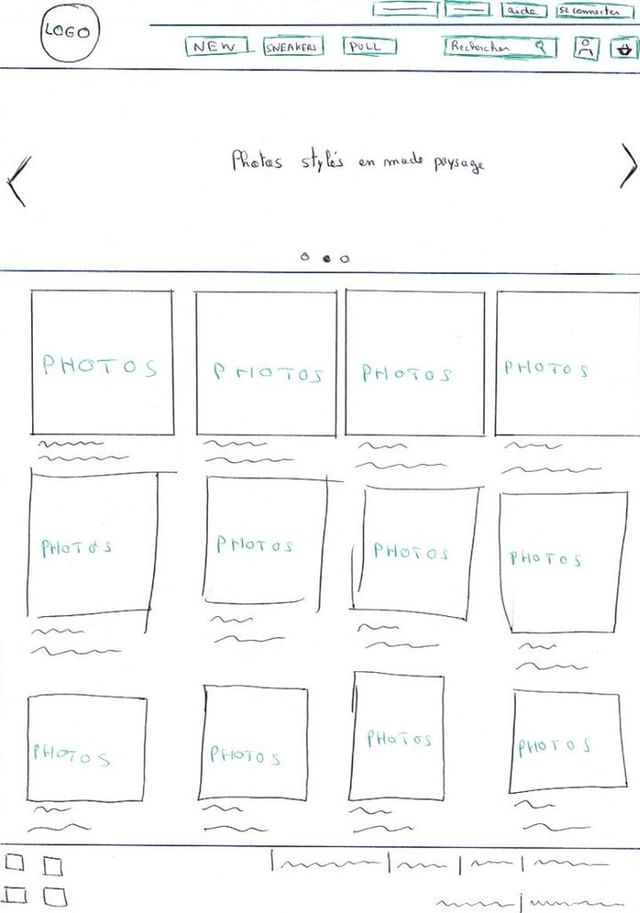 aide se connecter
LOGO
NEW SNEAKERS PULL Rechercher
Photos stylés en mode paysage
PHOTOS PHOTOS PHOTOS PHOTOS
PHOTOS PHOTOS PHOTOS PHOTOS
PHOTOS PHOTOS PHOTOS PHOTOS